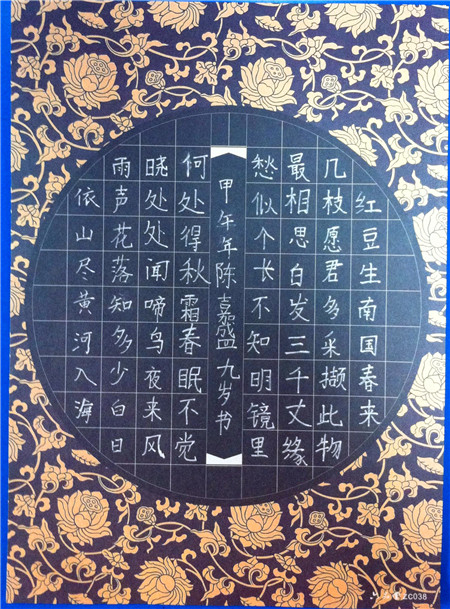 红豆生南国春来
几枝愿君多采撷此物
最相思白发三千丈缘
愁似个长不知明镜里
甲午年陈嘉盛九岁书
何处得秋霜春眠不觉
晓处处闻啼鸟夜来风
雨声花落知多少白日
依山尽黄河入海
ZC038